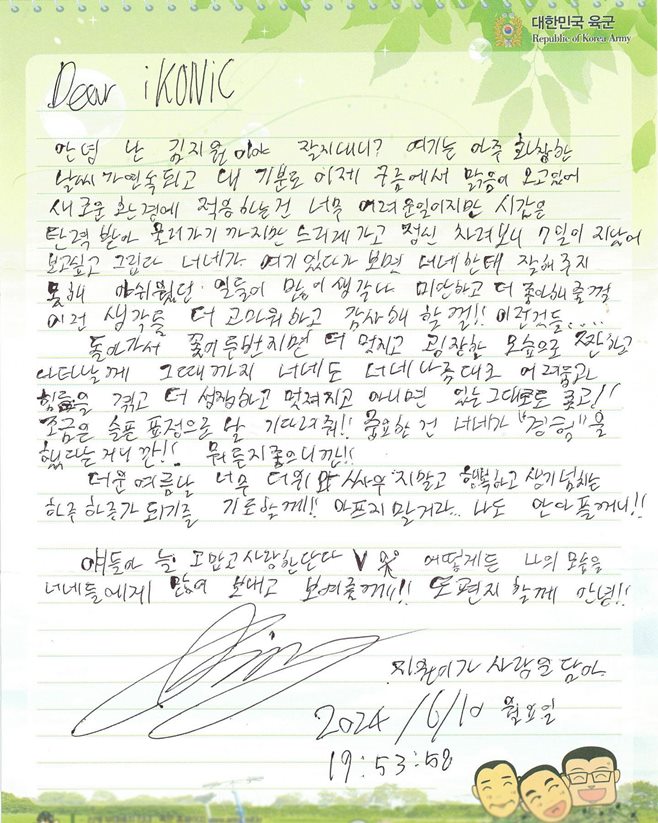 대한민국 육군
Republic of Korea Army
Dear iKONIC
안녕 난 김지원이야 잘지내니? 여기는 아주 화창한
날씨가 연속되고 내 기분도 이제 구름에서 맑음이 오고있어
새로운 환경에 적응하는건 너무 어려운일이지만 시간은
탄력 받아 올라가기 까지만 느리게가고 정신 차려보니 7일이 지났어
보고싶고 그립다 너네가 여기 있다가 보면 너네한테 잘해주지
못해 아쉬웠던 일들이 많이 생각나 미안하고 더 좋아해줄껄
이런 생각들 더 고마워하고 감사해 할껄!! 이런것들....
돌아가서 꽃이 두번지면 더 멋지고 굉장한 모습으로 짠하고
나타날게 그때까지 너네도 너네 나름대로 어려움과
힘듦을 겪고 더 성장하고 멋져지고 아니면 있는그대로도 좋고!!
조금은 슬픈 표정으로 날 기다려줘!! 중요한 건 너네가 "경험"을
했다는거니깐!! 뭐든지좋으니깐!!
더운 여름날 너무 더위와 싸우지말고 행복하고 생기 넘치는
하루하루가 되기를 기도할게!! 아프지 말거라.. 나도 안아플께니!!
얘들아 늘 고맙고 사랑한단다 V 어떻게든 나의 모습을
너네들에게 많이 보내고 보여줄게!! 또 편지 할게 안녕!!
지원이가 사랑을 담아
2024/6/10 월요일
19:53:58